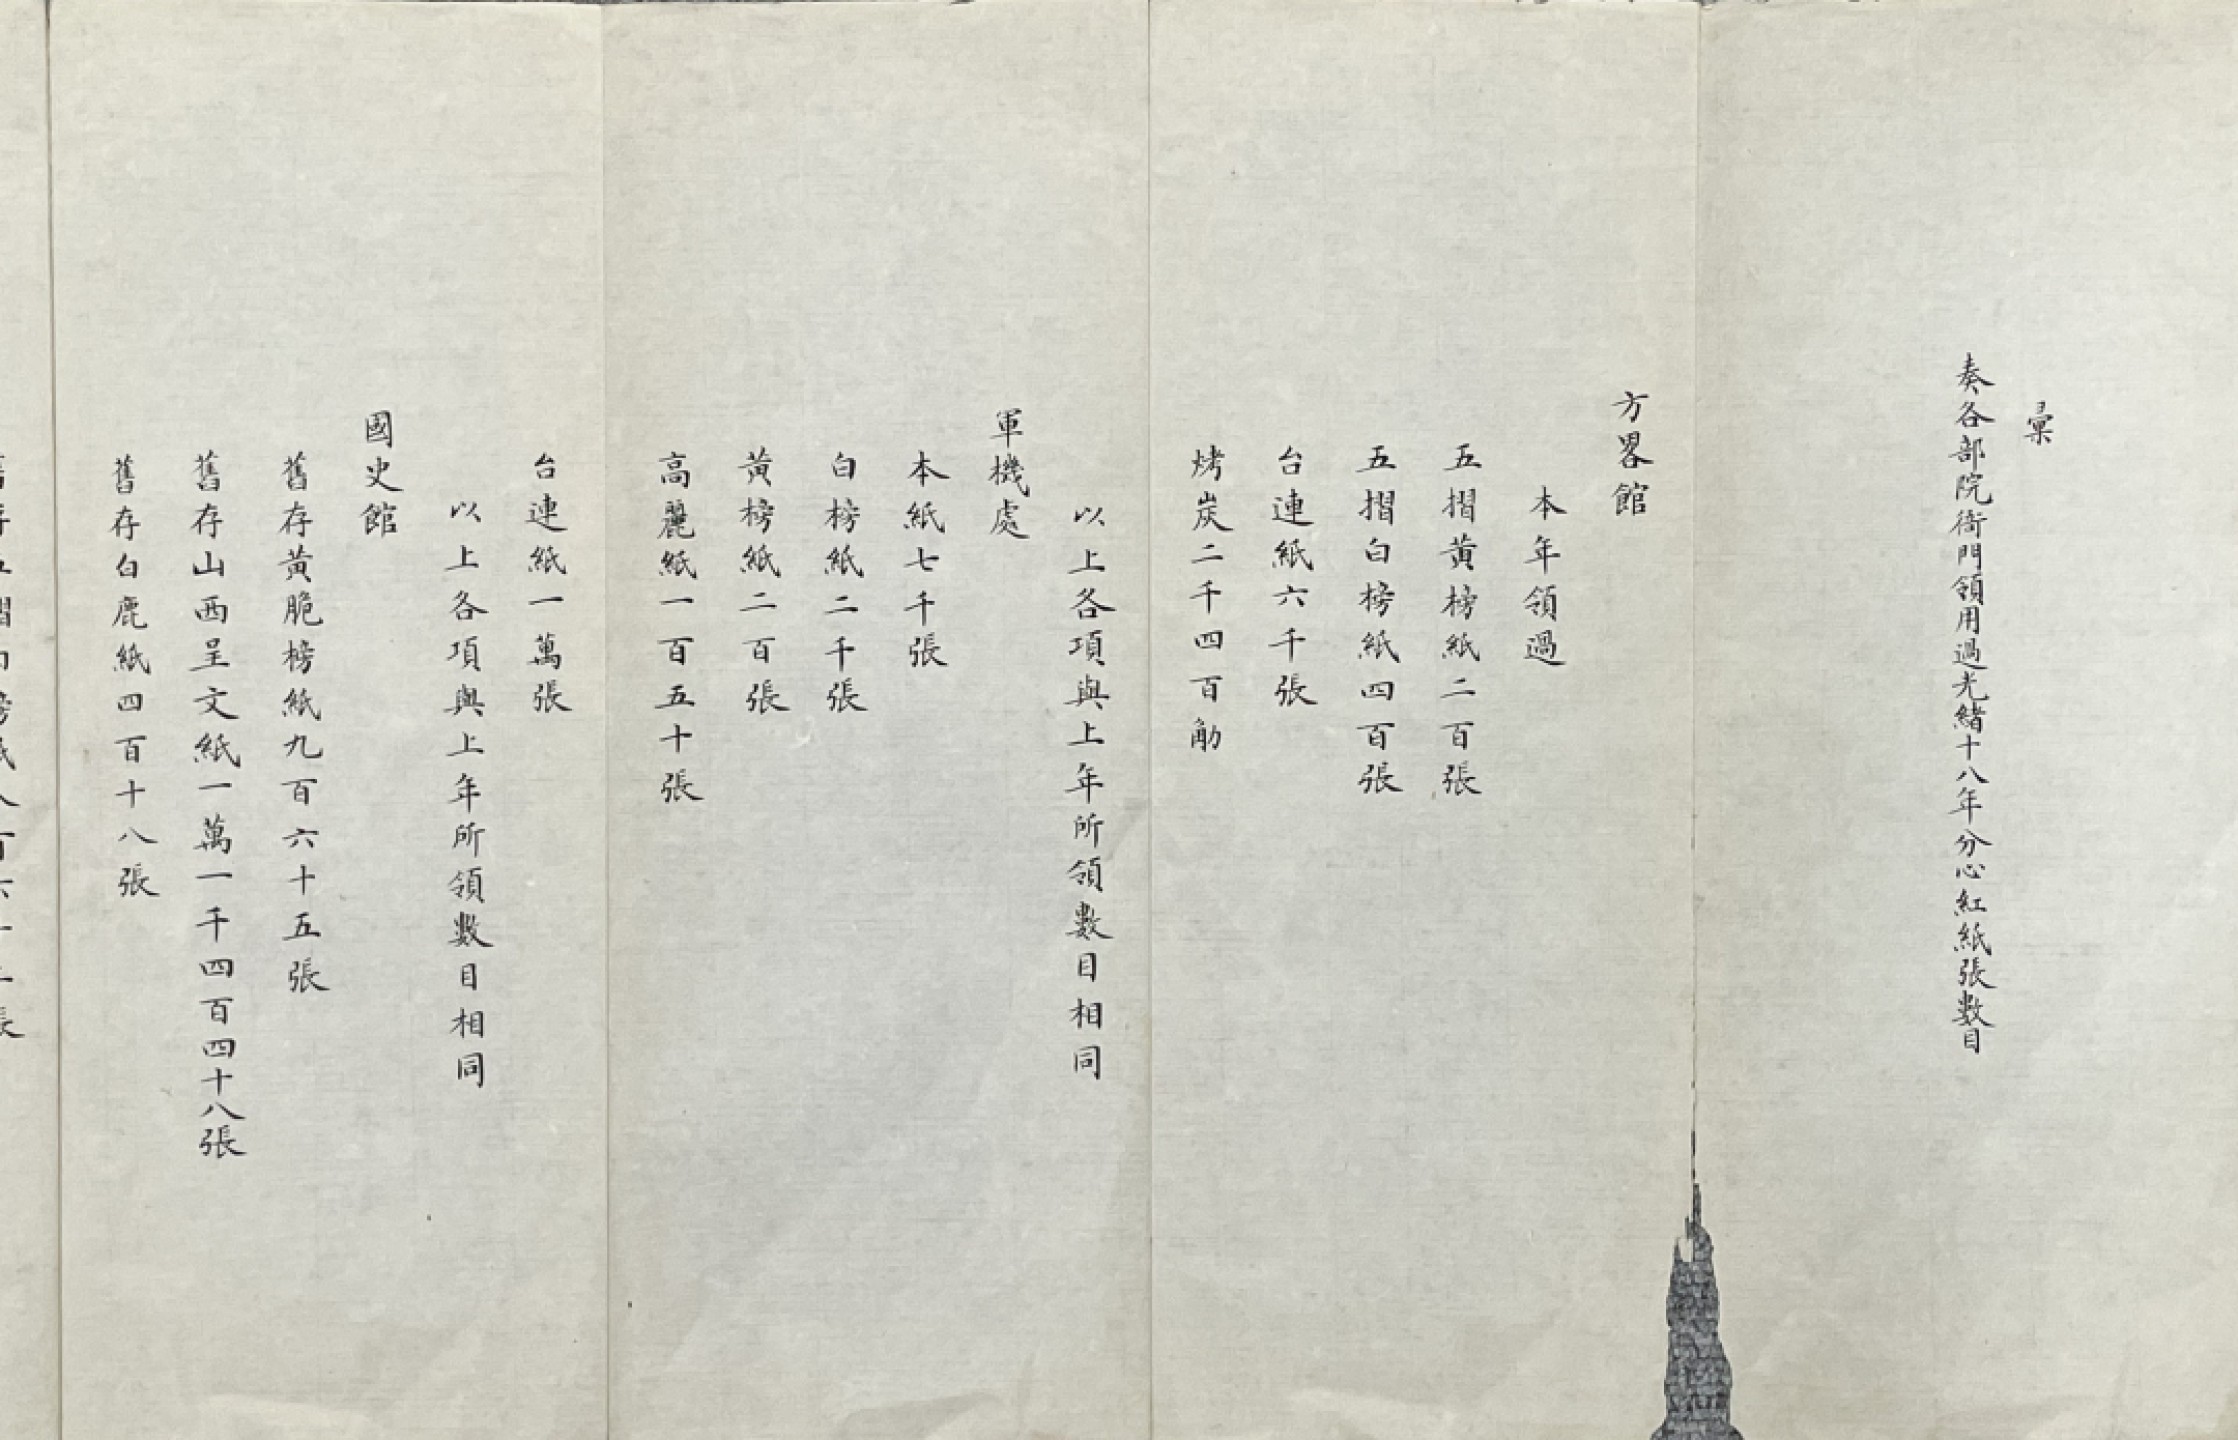 彙
奏各部院衙門領用過光緒十八年分心紅紙張數目
方畧館
本年領過
五摺黃榜紙二百張
五摺白榜紙四百張
台連紙六千張
烤炭二千四百觔
以上各項與上年所領數目相同
軍機處
本紙七千張
白榜紙二千張
黃榜紙二百張
高麗紙一百五十張
台連紙一萬張
以上各項與上年所領數目相同
國史館
舊存黃脆榜紙九百六十五張
舊存山西呈文紙一萬一千四百四十八張
舊存白鹿紙四百十八張